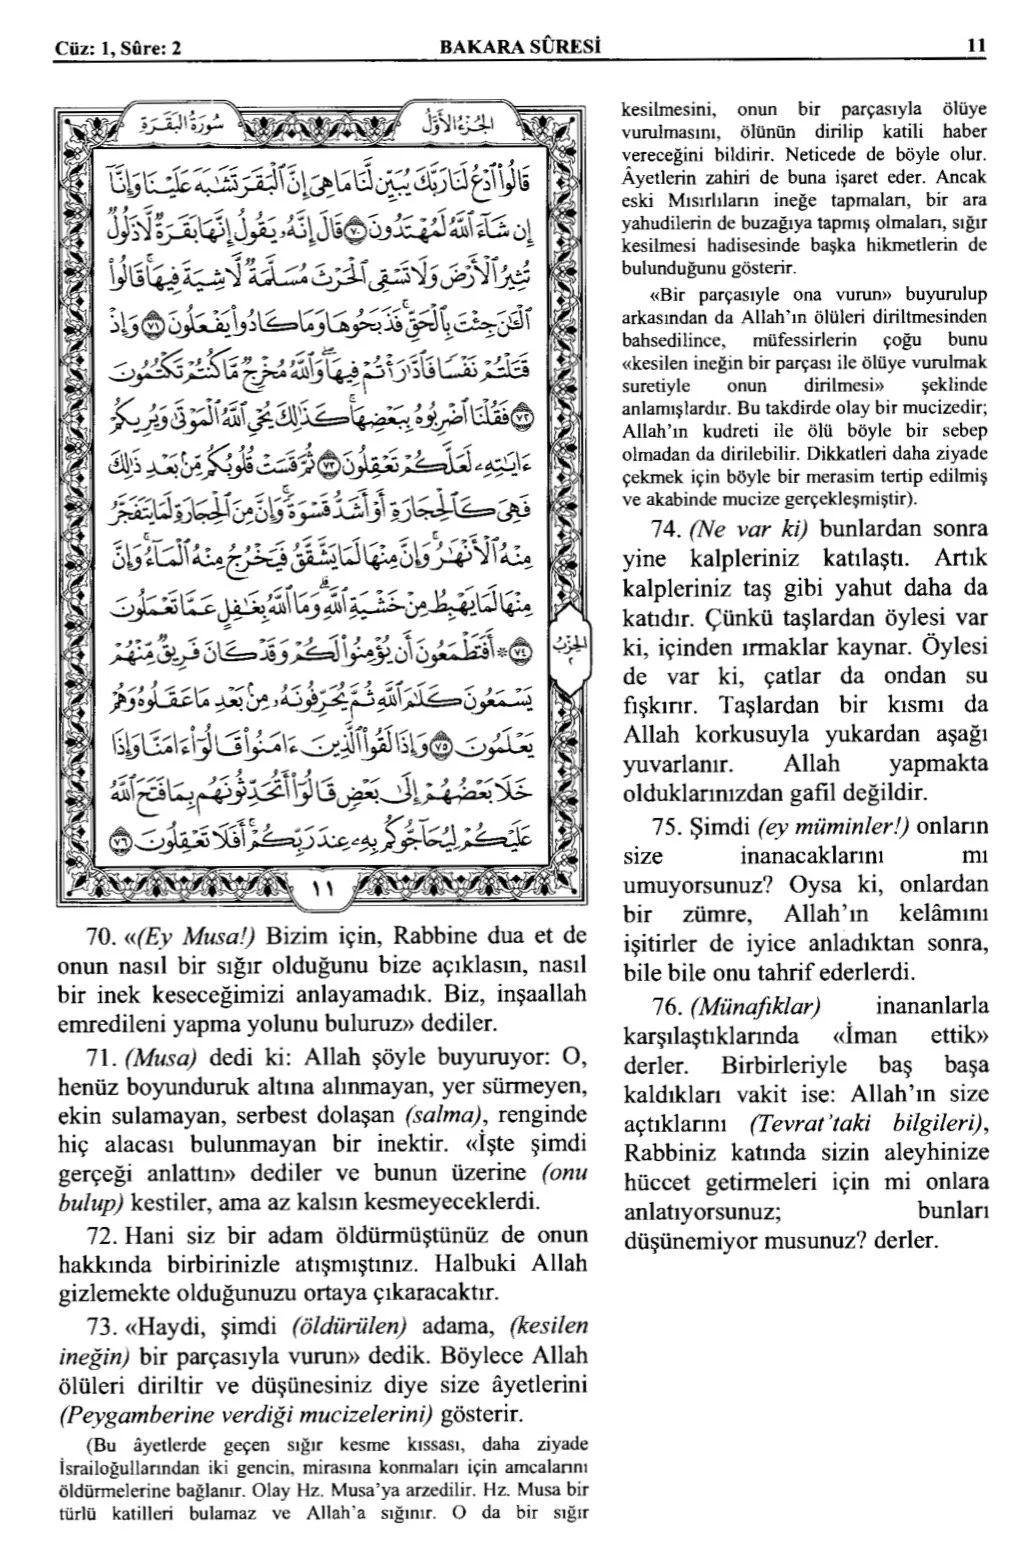 Cüz: 1, Sûre: 2
BAKARA SÛRESİ
11
سُورَةُ البَقَرَةِ
الجُزْءُ الأَوَّلُ
قَالُوا۟ ٱدْعُ لَنَا رَبَّكَ يُبَيِّن لَّنَا مَا هِىَ إِنَّ ٱلْبَقَرَ تَشَٰبَهَ عَلَيْنَا وَإِنَّآ
إِن شَآءَ ٱللَّهُ لَمُهْتَدُونَ ٧٠ قَالَ إِنَّهُۥ يَقُولُ إِنَّهَا بَقَرَةٌ لَّا ذَلُولٌ
تُثِيرُ ٱلْأَرْضَ وَلَا تَسْقِى ٱلْحَرْثَ مُسَلَّمَةٌ لَّا شِيَةَ فِيهَا ۚ قَالُوا۟
ٱلْـَٰٔنَ جِئْتَ بِٱلْحَقِّ ۚ فَذَبَحُوهَا وَمَا كَادُوا۟ يَفْعَلُونَ ٧١ وَإِذْ
قَتَلْتُمْ نَفْسًا فَٱدَّٰرَْٰٔتُمْ فِيهَا ۖ وَٱللَّهُ مُخْرِجٌ مَّا كُنتُمْ تَكْتُمُونَ
٧٢ فَقُلْنَا ٱضْرِبُوهُ بِبَعْضِهَا ۚ كَذَٰلِكَ يُحْىِ ٱللَّهُ ٱلْمَوْتَىٰ وَيُرِيكُمْ
ءَايَٰتِهِۦ لَعَلَّكُمْ تَعْقِلُونَ ٧٣ ثُمَّ قَسَتْ قُلُوبُكُم مِّنۢ بَعْدِ ذَٰلِكَ
فَهِىَ كَٱلْحِجَارَةِ أَوْ أَشَدُّ قَسْوَةً ۚ وَإِنَّ مِنَ ٱلْحِجَارَةِ لَمَا يَتَفَجَّرُ
مِنْهُ ٱلْأَنْهَٰرُ ۚ وَإِنَّ مِنْهَا لَمَا يَشَّقَّقُ فَيَخْرُجُ مِنْهُ ٱلْمَآءُ ۚ وَإِنَّ
مِنْهَا لَمَا يَهْبِطُ مِنْ خَشْيَةِ ٱللَّهِ ۗ وَمَا ٱللَّهُ بِغَٰفِلٍ عَمَّا تَعْمَلُونَ
٧٤ * أَفَتَطْمَعُونَ أَن يُؤْمِنُوا۟ لَكُمْ وَقَدْ كَانَ فَرِيقٌ مِّنْهُمْ
يَسْمَعُونَ كَلَٰمَ ٱللَّهِ ثُمَّ يُحَرِّفُونَهُۥ مِنۢ بَعْدِ مَا عَقَلُوهُ وَهُمْ
يَعْلَمُونَ ٧٥ وَإِذَا لَقُوا۟ ٱلَّذِينَ ءَامَنُوا۟ قَالُوٓا۟ ءَامَنَّا وَإِذَا
خَلَا بَعْضُهُمْ إِلَىٰ بَعْضٍ قَالُوٓا۟ أَتُحَدِّثُونَهُم بِمَا فَتَحَ ٱللَّهُ
عَلَيْكُمْ لِيُحَآجُّوكُم بِهِۦ عِندَ رَبِّكُمْ ۚ أَفَلَا تَعْقِلُونَ ٧٦
الحِزْبُ
٢
١١
70. «(Ey Musa!) Bizim için, Rabbine dua et de
onun nasıl bir sığır olduğunu bize açıklasın, nasıl
bir inek keseceğimizi anlayamadık. Biz, inşaallah
emredileni yapma yolunu buluruz» dediler.
71. (Musa) dedi ki: Allah şöyle buyuruyor: O,
henüz boyunduruk altına alınmayan, yer sürmeyen,
ekin sulamayan, serbest dolaşan (salma), renginde
hiç alacası bulunmayan bir inektir. «İşte şimdi
gerçeği anlattın» dediler ve bunun üzerine (onu
bulup) kestiler, ama az kalsın kesmeyeceklerdi.
72. Hani siz bir adam öldürmüştünüz de onun
hakkında birbirinizle atışmıştınız. Halbuki Allah
gizlemekte olduğunuzu ortaya çıkaracaktır.
73. «Haydi, şimdi (öldürülen) adama, (kesilen
ineğin) bir parçasıyla vurun» dedik. Böylece Allah
ölüleri diriltir ve düşünesiniz diye size âyetlerini
(Peygamberine verdiği mucizelerini) gösterir.
(Bu âyetlerde geçen sığır kesme kıssası, daha ziyade
İsrailoğullarından iki gencin, mirasına konmaları için amcalarını
öldürmelerine bağlanır. Olay Hz. Musa'ya arzedilir. Hz. Musa bir
türlü katilleri bulamaz ve Allah'a sığınır. O da bir sığır
kesilmesini, onun bir parçasıyla ölüye
vurulmasını, ölünün dirilip katili haber
vereceğini bildirir. Neticede de böyle olur.
Âyetlerin zahiri de buna işaret eder. Ancak
eski Mısırlıların ineğe tapmaları, bir ara
yahudilerin de buzağıya tapmış olmaları, sığır
kesilmesi hadisesinde başka hikmetlerin de
bulunduğunu gösterir.
«Bir parçasıyle ona vurun» buyurulup
arkasından da Allah'ın ölüleri diriltmesinden
bahsedilince, müfessirlerin çoğu bunu
«kesilen ineğin bir parçası ile ölüye vurulmak
suretiyle onun dirilmesi» şeklinde
anlamışlardır. Bu takdirde olay bir mucizedir;
Allah'ın kudreti ile ölü böyle bir sebep
olmadan da dirilebilir. Dikkatleri daha ziyade
çekmek için böyle bir merasim tertip edilmiş
ve akabinde mucize gerçekleşmiştir).
74. (Ne var ki) bunlardan sonra
yine kalpleriniz katılaştı. Artık
kalpleriniz taş gibi yahut daha da
katıdır. Çünkü taşlardan öylesi var
ki, içinden ırmaklar kaynar. Öylesi
de var ki, çatlar da ondan su
fışkırır. Taşlardan bir kısmı da
Allah korkusuyla yukardan aşağı
yuvarlanır. Allah yapmakta
olduklarınızdan gafil değildir.
75. Şimdi (ey müminler!) onların
size inanacaklarını mı
umuyorsunuz? Oysa ki, onlardan
bir zümre, Allah'ın kelâmını
işitirler de iyice anladıktan sonra,
bile bile onu tahrif ederlerdi.
76. (Münafıklar) inananlarla
karşılaştıklarında «İman ettik»
derler. Birbirleriyle baş başa
kaldıkları vakit ise: Allah'ın size
açtıklarını (Tevrat'taki bilgileri),
Rabbiniz katında sizin aleyhinize
hüccet getirmeleri için mi onlara
anlatıyorsunuz; bunları
düşünemiyor musunuz? derler.